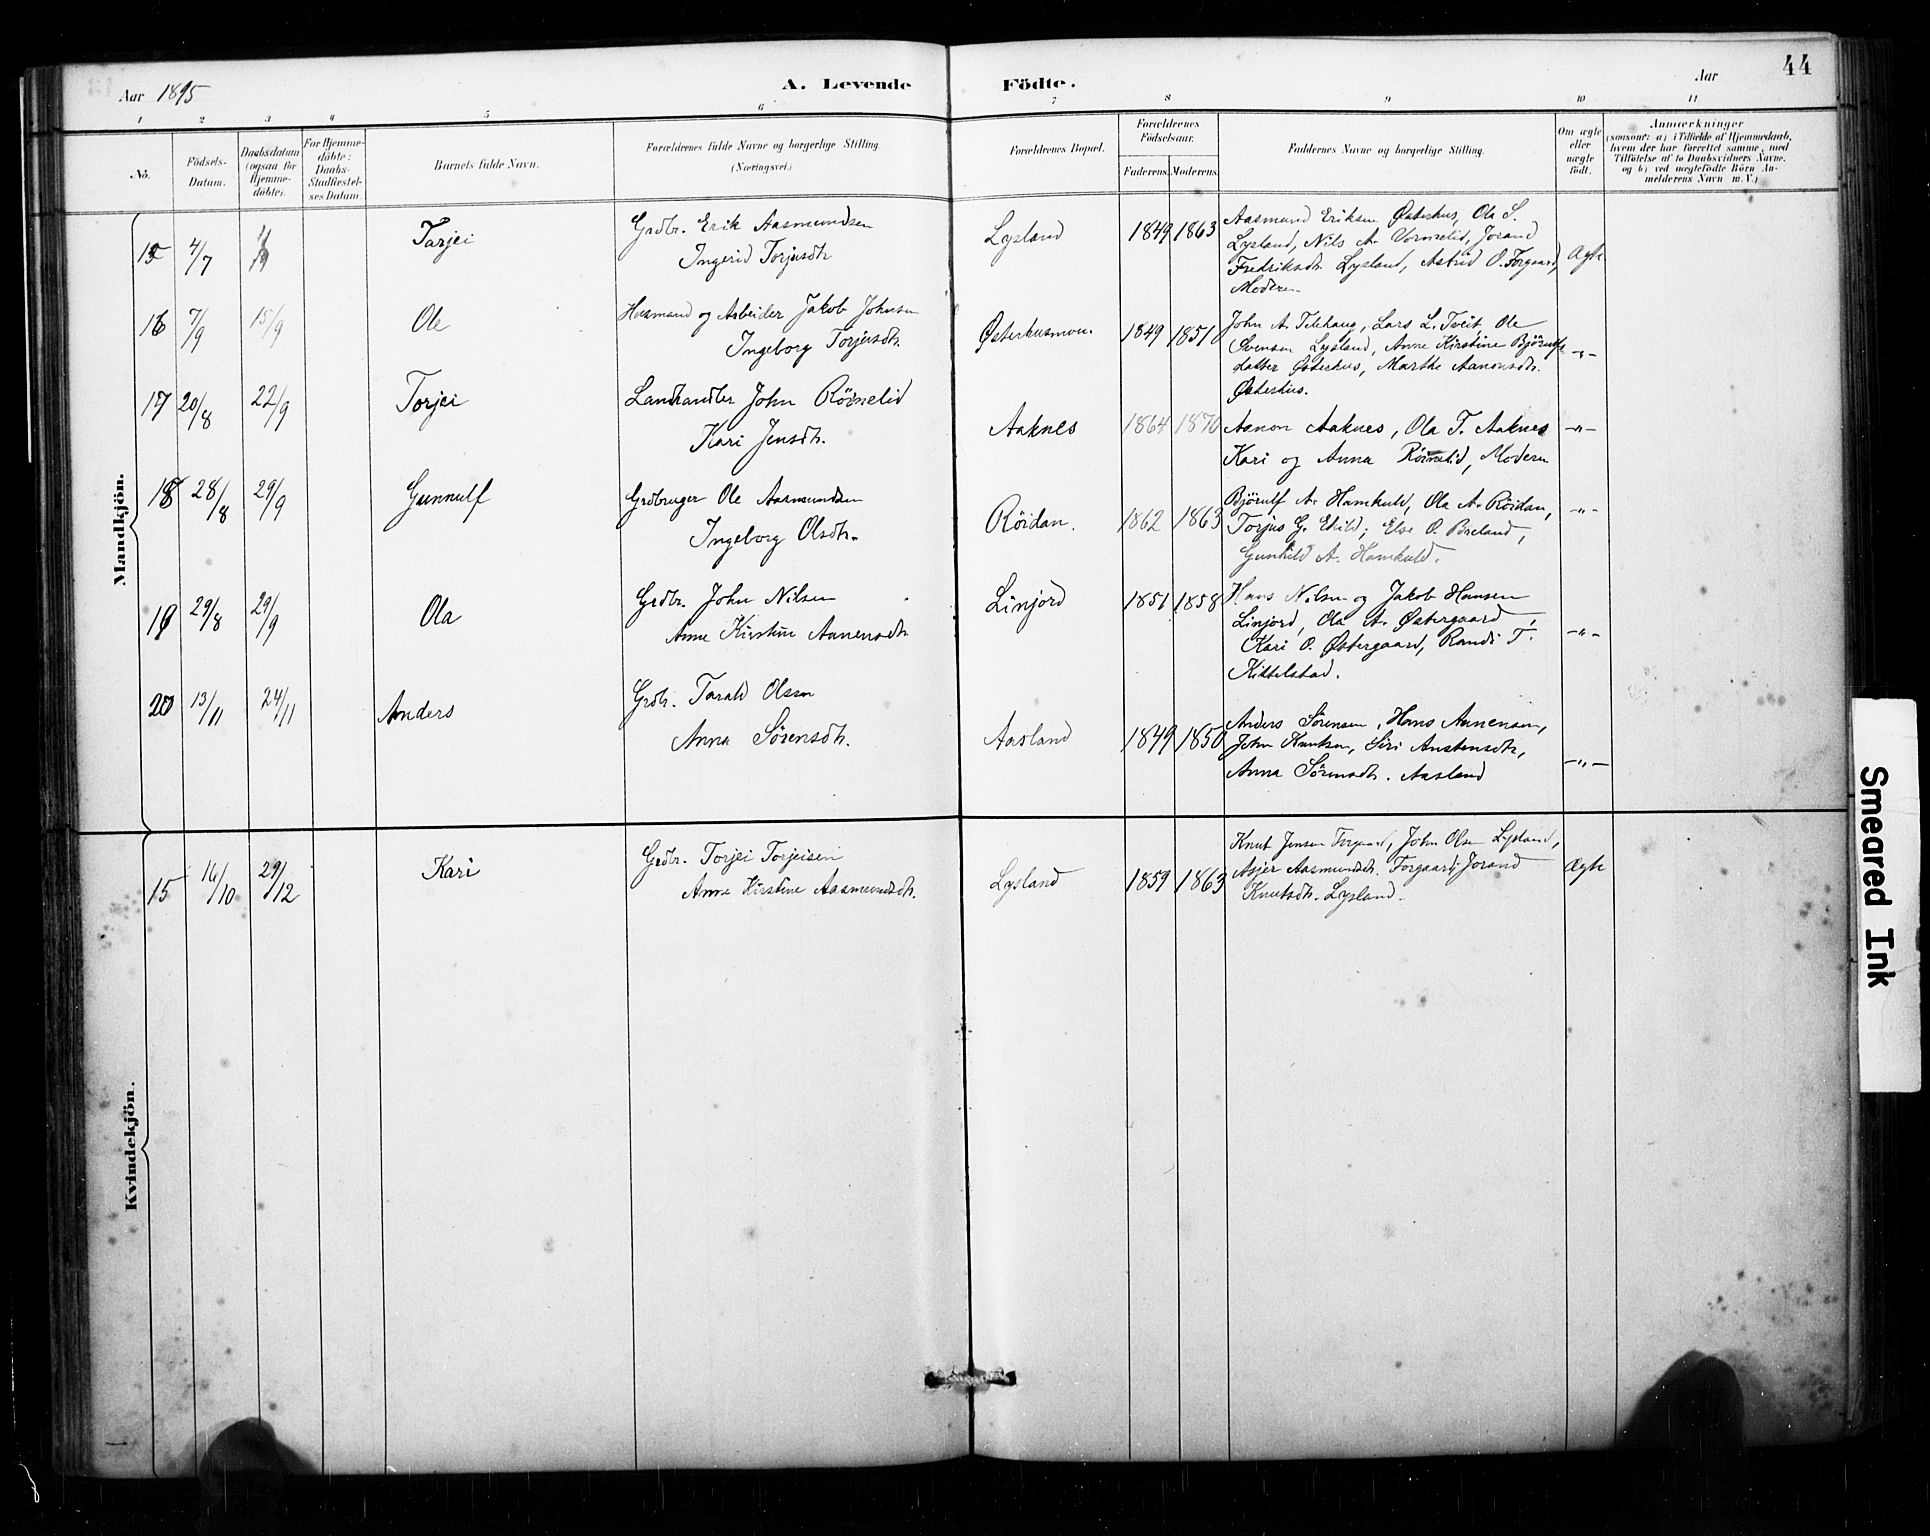 44
Aar 1895
A. Levende Födte.
Aar
1 2 3 4 5 6 7 8 9 10 11
No.
Födsels-Datum.
Daabsdatum (ogsaa för Hjemme-döbte).
For Hjemme-döbte: Daabs-Stadfæstel-ses Datum.
Barnets fulde Navn.
Forældrenes fulde Navne og borgerlige Stilling.
(Næringsvei.)
Forældrenes Bopæl.
Forældrenes Födselsaar.
Faderens. Moderens.
Faddernes Navne og borgerlige Stilling.
Om ægte eller uægte födt.
Anmærkninger
(saasom: a) i Tilfælde af Hjemmedaab,
hvem der har forrettet samme, med
Tilföielse af to Daabsvidners Navne,
og b) ved uægtefödte Börn An-
melderens Navn m. V.)
Mandkjön.
15 4/7 Tarjei
Grdbr. Erik Aasmundsen
Ingerid Torjusdtr
Lysland 1849 1863
Aasmund Eriksen Østerhus, Ola S.
Lysland, Nils A. Vormelid, Jorand
Fredriksdtr. Lysland, Astrid O. Forgaard,
Moderen
Ægte
16 7/9 15/9 Ole
Husmand og Arbeider Jakob Johnsen
Ingeborg Torjusdtr.
Østerhusmon. 1849 1851
John A. Telehaug, Lars L. Tveit, Ole
Svensen Lysland, Anne Kirstine Bjørulfs
datter Østerhus, Marthe Aanonsdtr.
Østerhus.
-"-
17 20/8 22/9 Torjei
Landhandler John Römelid
Kari Jensdtr.
Aaknes 1864 1870
Aanon Aaknes, Ola T. Aaknes
Kari og Anna Römelid, Moderen
-"-
18 28/8 29/9 Gunnulf
Grdbruger Ole Aasmundsen
Ingeborg Olsdtr.
Röidan. 1862 1863
Bjørulf A. Hamkuld, Ola A. Röidan,
Torjus G. Eikild; Else O. Breland,
Gunhild A. Hamkuld.
-"-
19 29/8 29/9 Ola
Grdbr. John Nilsen
Anne Kirstine Aanensdtr
Linjord 1851 1858
Hans Nilsen og Jakob Hansen
Linjord, Ola A. Østergaard,
Kari O. Østergaard, Randi T.
Kittelstad.
-"-
20 13/11 24/11 Anders
Grdbr. Tarald Olsen
Anna Sörensdtr.
Aasland 1849 1850
Anders Sörensen, Hans Aanensen,
John Knutsen, Siri Austensdtr,
Anna Sörensdtr. Aasland
-"-
Kvindekjön.
15 16/10 29/12 Kari
Grdbr. Torjei Torjeisen
Anne Kirstine Aasmundsdtr.
Lysland 1859 1863
Knut Jensen Forgaard, John Olsen Lysland,
Asjer Aasmundsdtr. Forgaard, Jorand
Knutsdtr. Lysland.
Ægte
Smeared Ink